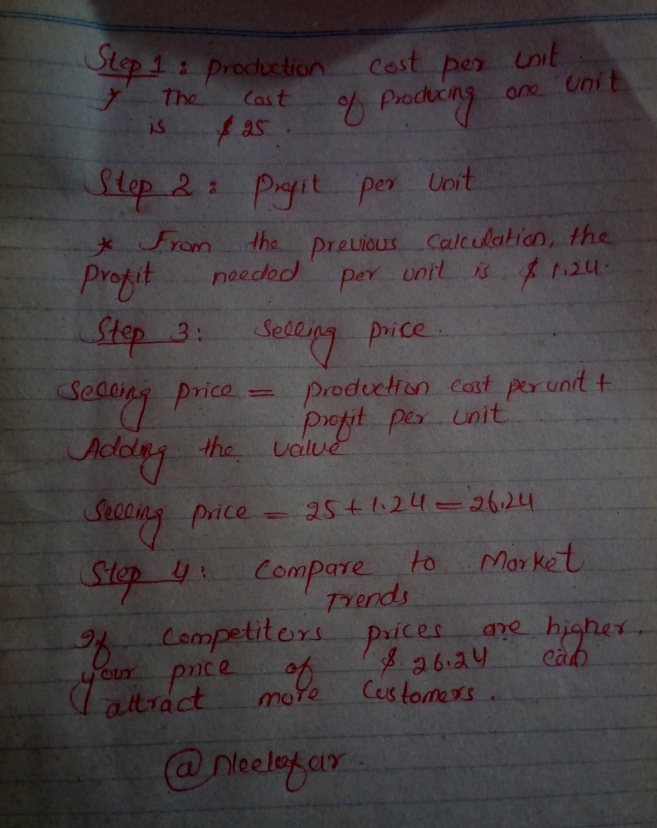 Step 1 : Production cost per unit
* The cost of producing one unit
is $ 25.
Step 2 : Profit per unit
* From the previous calculation, the
profit needed per unit is $ 1.24.
Step 3 : Selling price.
Selling price = production cost per unit +
profit per unit
Adding the value
Selling price = 25 + 1.24 = 26.24
Step 4 : Compare to Market
Trends
If competitors prices are higher,
your price of $ 26.24 can
attract more customers.
@ Neelofar.